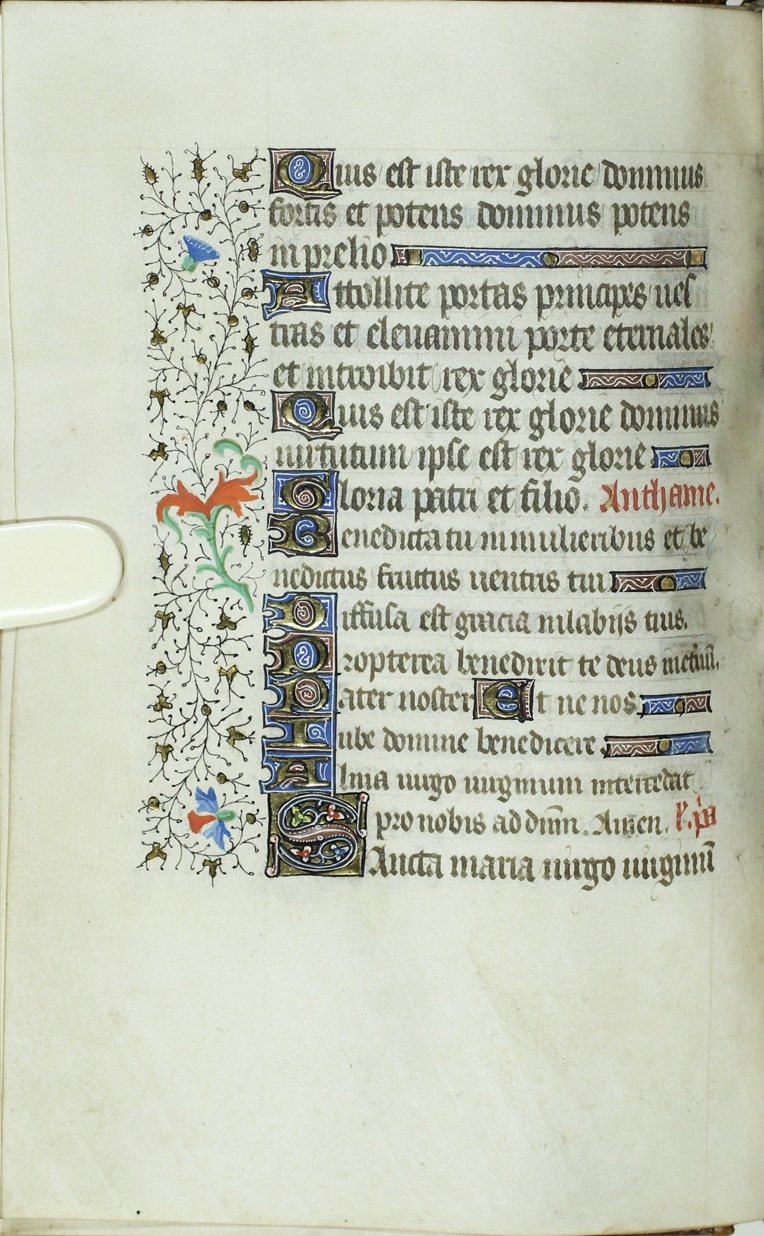 Quis est iste rex glorie dominus
fortis et potens dominus potens
in prelio
Attollite portas principes ves
tras et elevamini porte eternales
et introibit rex glorie
Quis est iste rex glorie dominus
virtutum ipse est rex glorie
Gloria patri et filio. Anthame.
Benedicta tu in mulieribus et be
nedictus fructus ventris tui
Diffusa est gracia in labijs tuis.
Propterea benedixit te deus in eternũ.
Pater noster Et ne nos
Iube domine benedicere
Alma virgo virginum intercedat
pro nobis ad dñm. Amen.
Sancta maria virgo virginũ